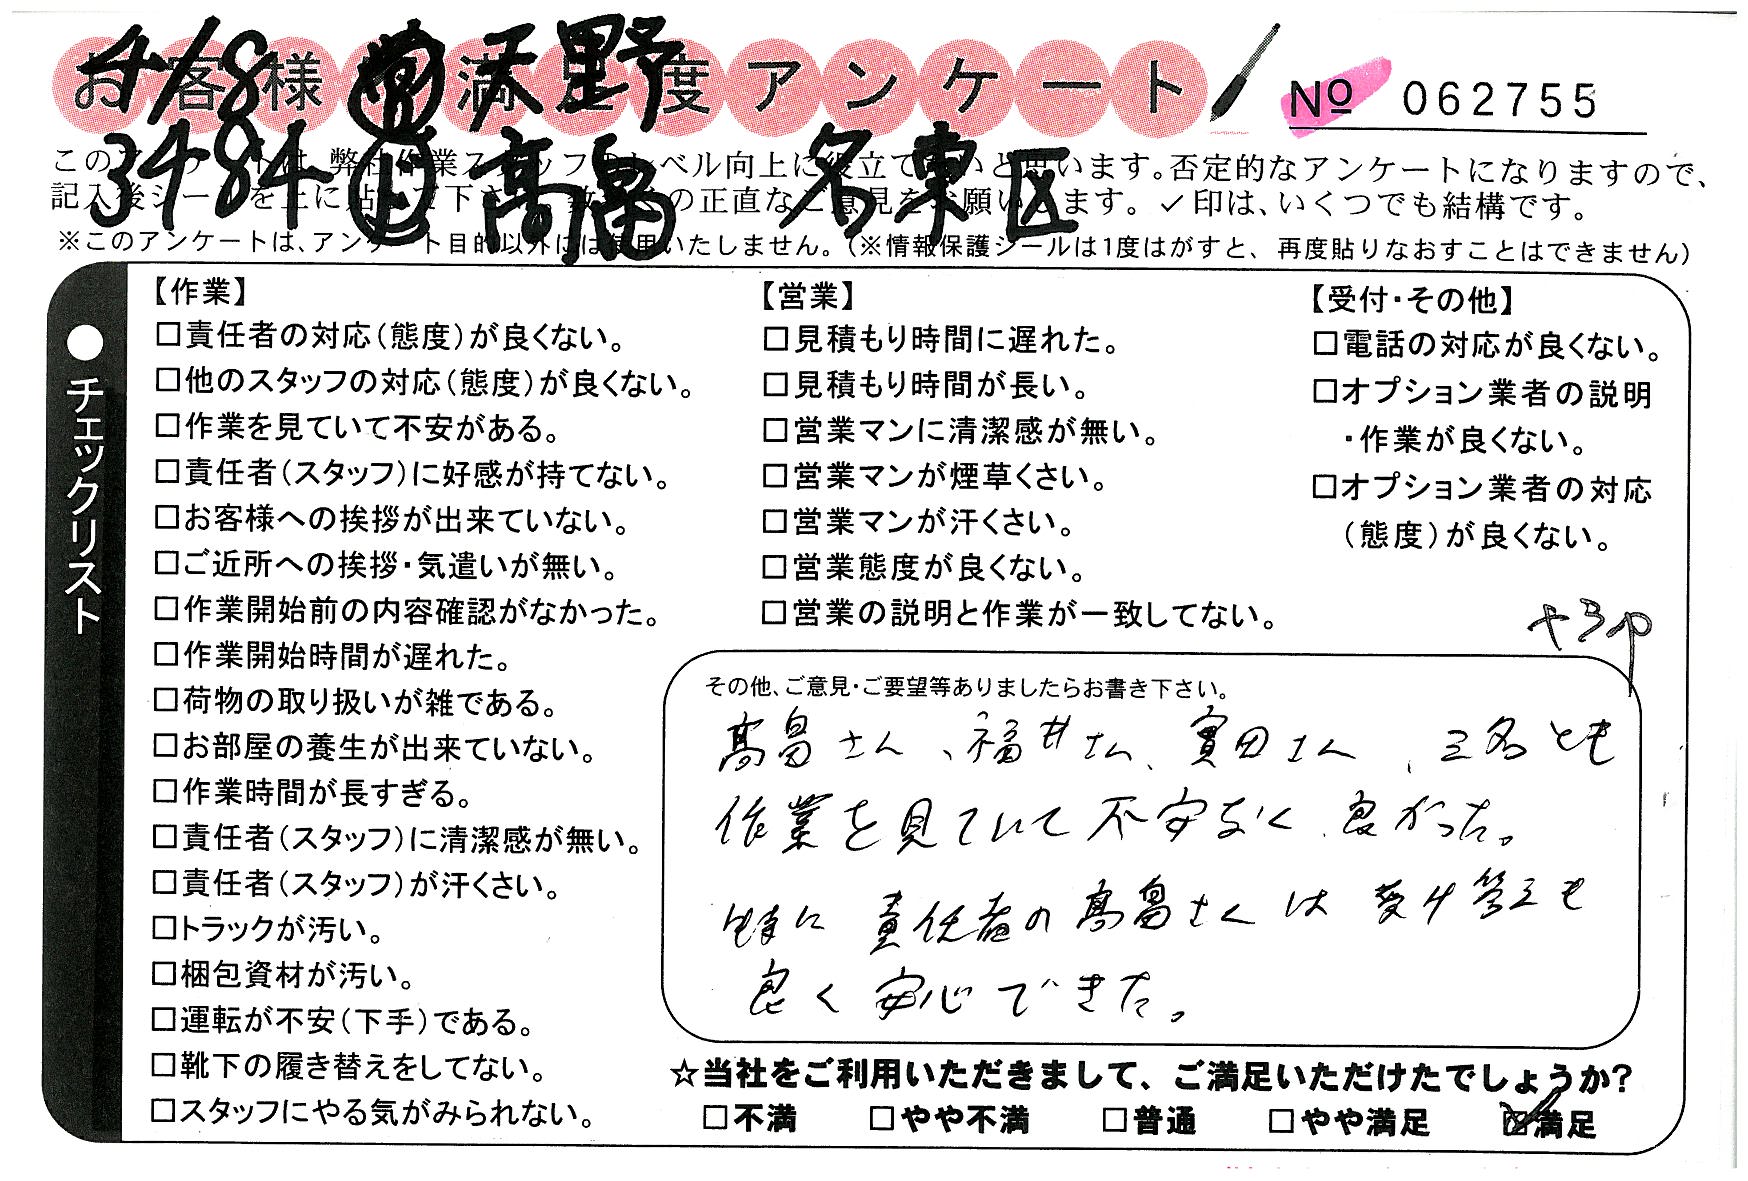 お客様満足度アンケート
No 062755
4/18 営 天野
3484 上 高畠 名東区
このアンケートは、弊社作業スタッフのレベル向上に役立てたいと思います。否定的なアンケートになりますので、
記入後シールを上に貼って下さい。数多くの正直なご意見をお願いします。✓印は、いくつでも結構です。
※このアンケートは、アンケート目的以外には使用いたしません。(※情報保護シールは1度はがすと、再度貼りなおすことはできません)
●チェックリスト
【作業】
□責任者の対応(態度)が良くない。
□他のスタッフの対応(態度)が良くない。
□作業を見ていて不安がある。
□責任者(スタッフ)に好感が持てない。
□お客様への挨拶が出来ていない。
□ご近所への挨拶・気遣いが無い。
□作業開始前の内容確認がなかった。
□作業開始時間が遅れた。
□荷物の取り扱いが雑である。
□お部屋の養生が出来ていない。
□作業時間が長すぎる。
□責任者(スタッフ)に清潔感が無い。
□責任者(スタッフ)が汗くさい。
□トラックが汚い。
□梱包資材が汚い。
□運転が不安(下手)である。
□靴下の履き替えをしてない。
□スタッフにやる気がみられない。
【営業】
□見積もり時間に遅れた。
□見積もり時間が長い。
□営業マンに清潔感が無い。
□営業マンが煙草くさい。
□営業マンが汗くさい。
□営業態度が良くない。
□営業の説明と作業が一致してない。
【受付・その他】
□電話の対応が良くない。
□オプション業者の説明
・作業が良くない。
□オプション業者の対応
(態度)が良くない。
+3p
その他、ご意見・ご要望等ありましたらお書き下さい。
高畠さん、福井さん、寳田さん、三名とも
作業を見ていて不安なく良かった。
特に責任者の高畠さんは受け答えも
良く安心できた。
☆当社をご利用いただきまして、ご満足いただけたでしょうか?
□不満 □やや不満 □普通 □やや満足 ☑満足